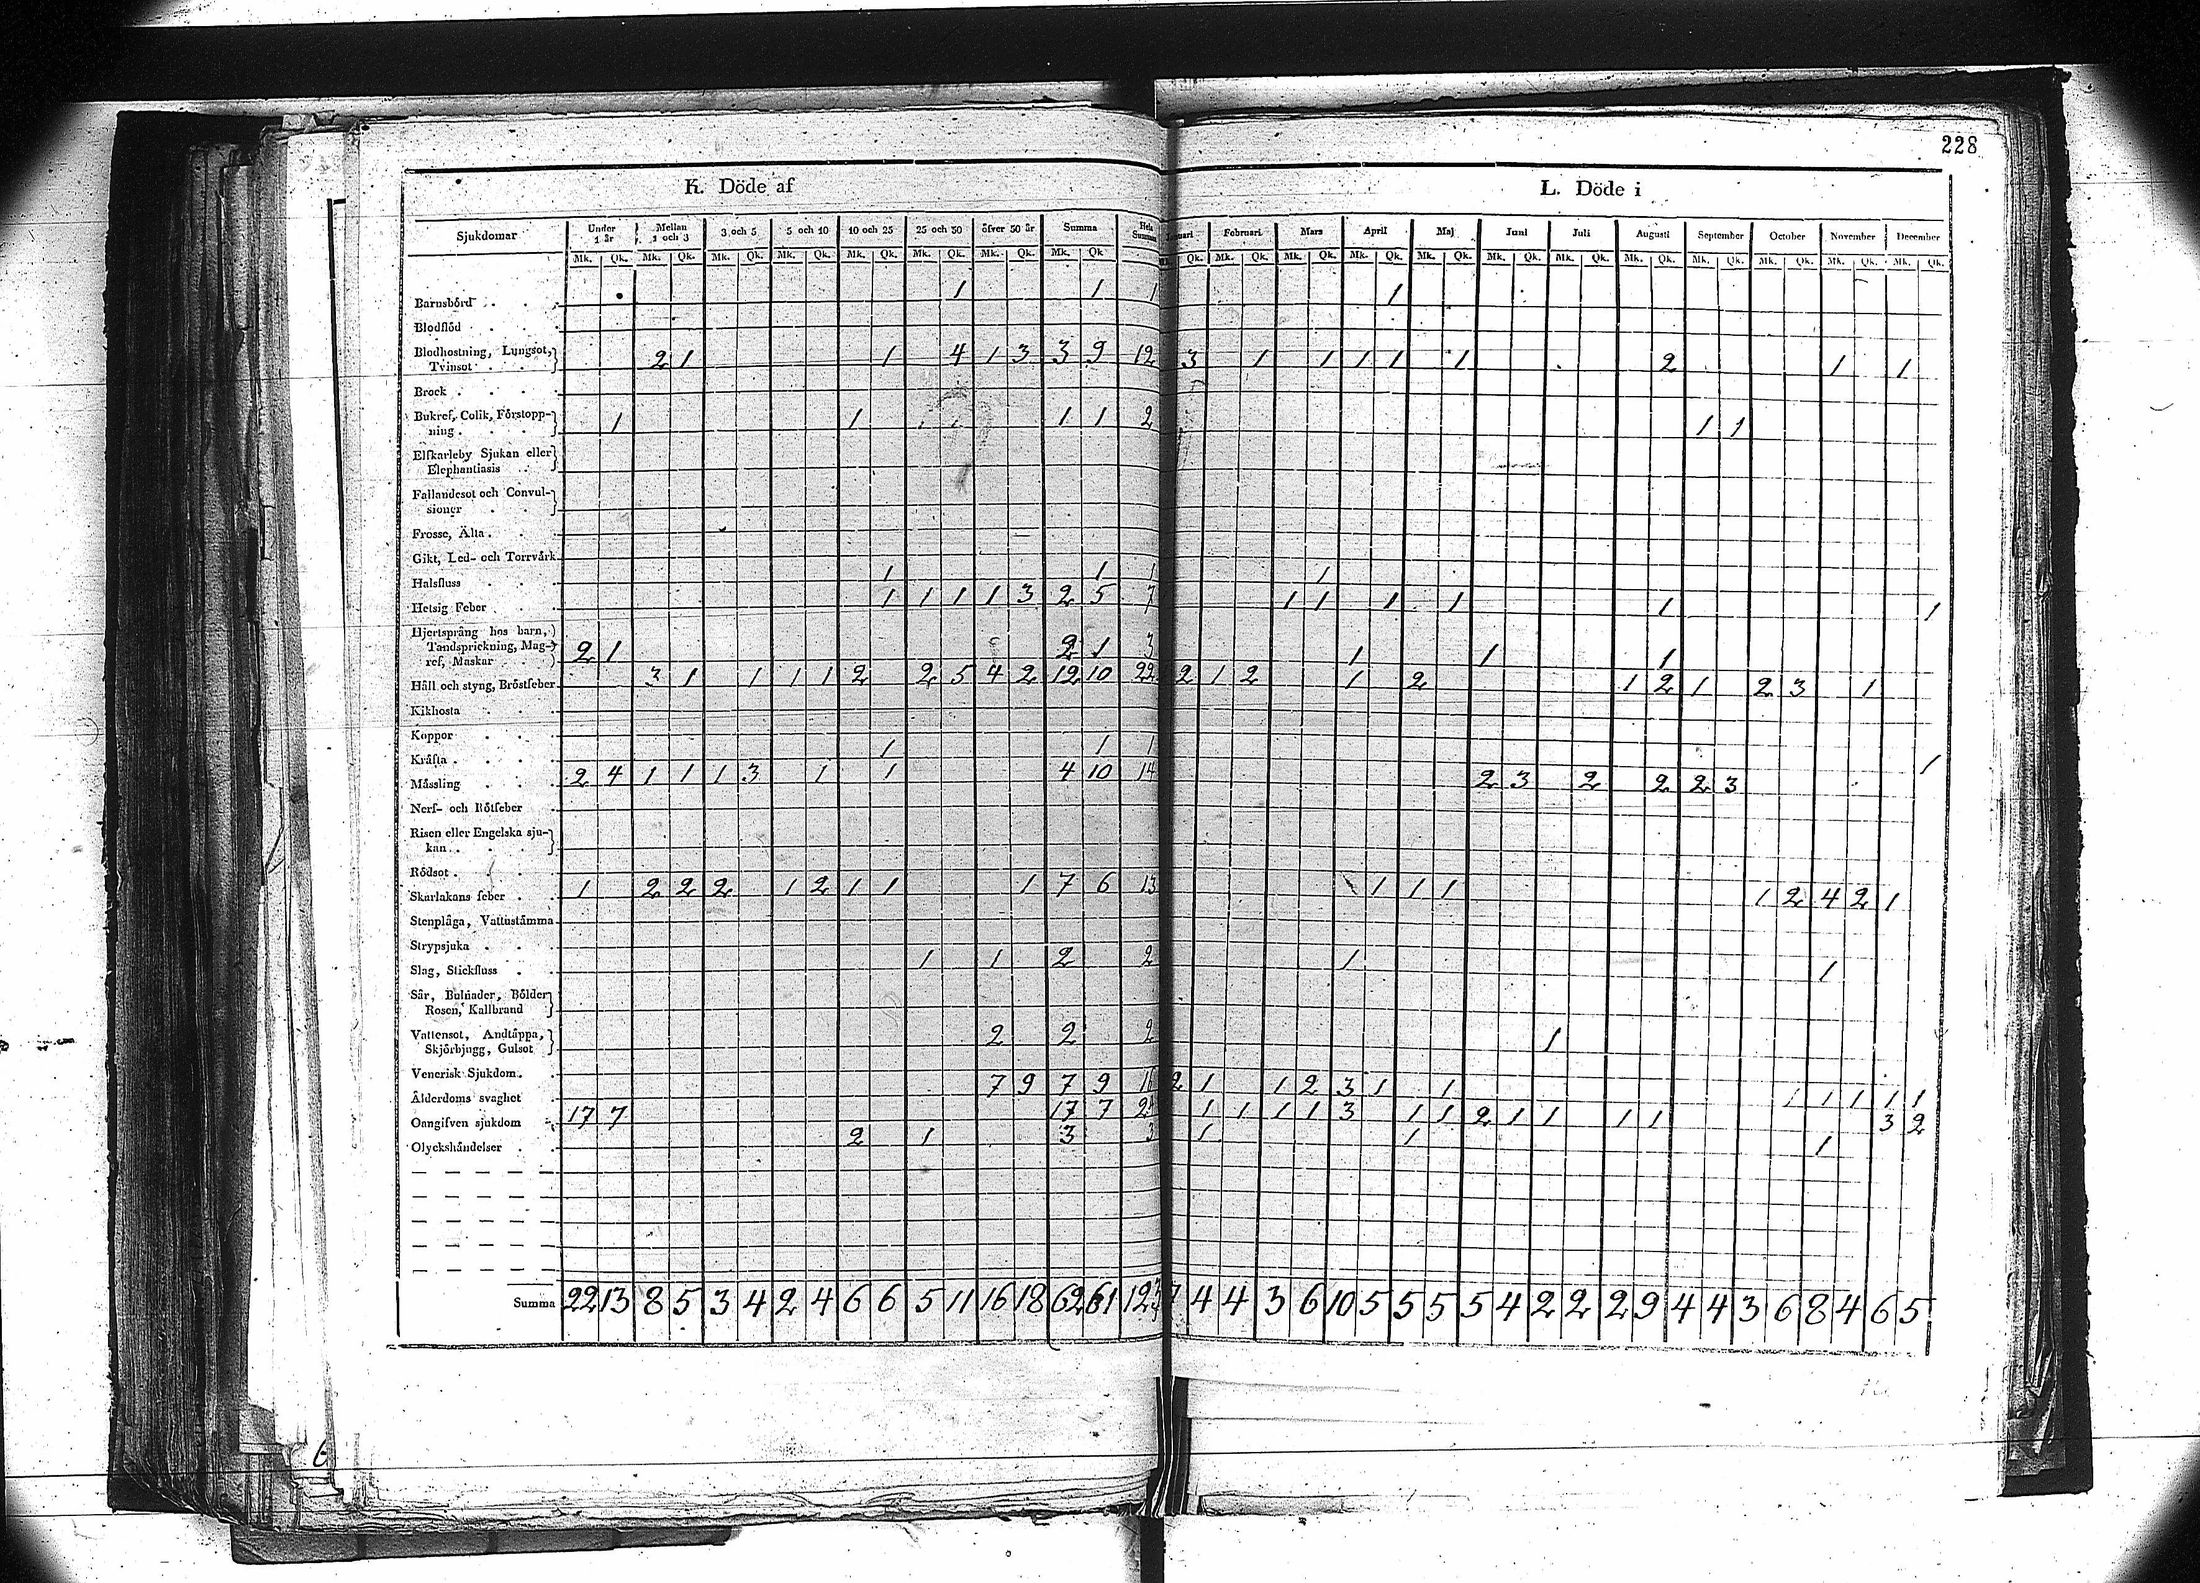 228
K. Döde af L. Döde i
Sjukdomar Under 1 år Mellan 1 och 3 3 och 5 5 och 10 10 och 25 25 och 50 öfver 50 år Summa Hela Summan Januari Februari Mars April Maj Juni Juli Augusti September October November December
Mk. Qk. Mk. Qk. Mk. Qk. Mk. Qk. Mk. Qk. Mk. Qk. Mk. Qk. Mk. Qk Mk. Qk. Mk. Qk. Mk. Qk. Mk. Qk. Mk. Qk. Mk. Qk. Mk. Qk. Mk. Qk. Mk. Qk. Mk. Qk. Mk. Qk. Mk. Qk.
Barnsbörd 1 1 1 1
Blodflöd
Blodhostning, Lungsot,
Tvinsot 2 1 1 4 1 3 3 9 12 3 1 1 1 1 1 2 1 1
Brock
Bukref, Colik, Förstopp-
ning 1 1 1 1 2 1 1
Elfkarleby Sjukan eller
Elephantiasis
Fallandesot och Convul-
sioner
Frosse, Älta
Gikt, Led- och Torrvärk
Halsfluss 1 1 1 1
Hetsig Feber 1 1 1 1 3 2 5 7 1 1 1 1 1 1
Hjertsprång hos barn,
Tandsprickning, Mag-
ref, Maskar 2 1 2 1 3 1 1 1
Håll och styng, Bröstfeber 3 1 1 1 1 2 2 5 4 2 12 10 22 2 1 2 1 2 1 2 1 2 3 1
Kikhosta
Koppor
Kräfta 1 1 1 1
Mässling 2 4 1 1 1 3 1 1 4 10 14 2 3 2 2 2 3
Nerf- och Rötfeber
Risen eller Engelska sju-
kan
Rödsot
Skarlakans feber 1 2 2 2 1 2 1 1 1 7 6 13 1 1 1 1 2 4 2 1
Stenplåga, Vattustämma
Strypsjuka
Slag, Stickfluss 1 1 2 2 1 1
Sår, Bulnader, Bölder
Rosen, Kallbrand
Vattensot, Andtäppa,
Skjörbjugg, Gulsot 2 2 2 1
Venerisk Sjukdom
Ålderdoms svaghet 7 9 7 9 16 2 1 1 2 3 1 1 1 1 1 1 1
Oangifven sjukdom 17 7 17 7 24 1 1 1 1 3 1 1 2 1 1 1 1 3 2
Olyckshändelser 2 1 3 3 1 1 1
Summa 22 13 8 5 3 4 2 4 6 6 5 11 16 18 62 61 123 7 4 4 3 6 10 5 5 5 5 4 2 2 2 9 4 4 3 6 8 4 6 5